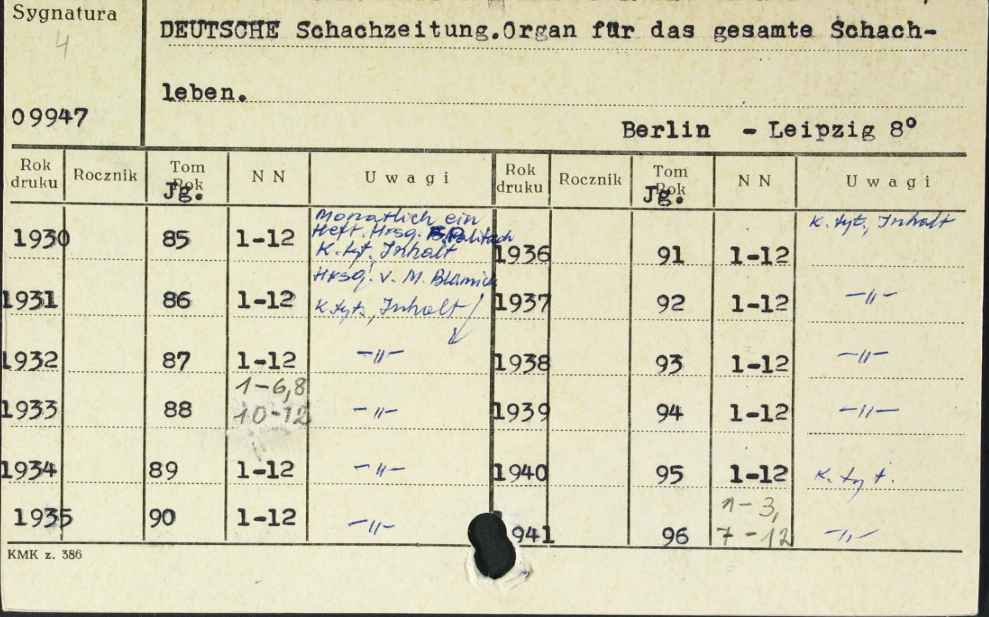 Sygnatura
4
09947
DEUTSCHE Schachzeitung.Organ für das gesamte Schach-
leben.
Berlin - Leipzig 8°
Rok druku Rocznik Tom Rok Jg. N N Uwagi Rok druku Rocznik Tom Rok Jg. N N Uwagi
1930 85 1-12 Monatlich ein
Heft. Hrsg.
K. tyt, Inhalt
1931 86 1-12 Hrsg. v. M.
K. tyt., Inhalt
1932 87 1-12 -"-
1933 88 1-6,8
10-12 -"-
1934 89 1-12 -"-
1935 90 1-12 -"-
1936 91 1-12 K. tyt, Inhalt
1937 92 1-12 -"-
1938 93 1-12 -"-
1939 94 1-12 -"-
1940 95 1-12 K. tyt.
941 96 1-3,
7-12 -"-
KMK z. 386